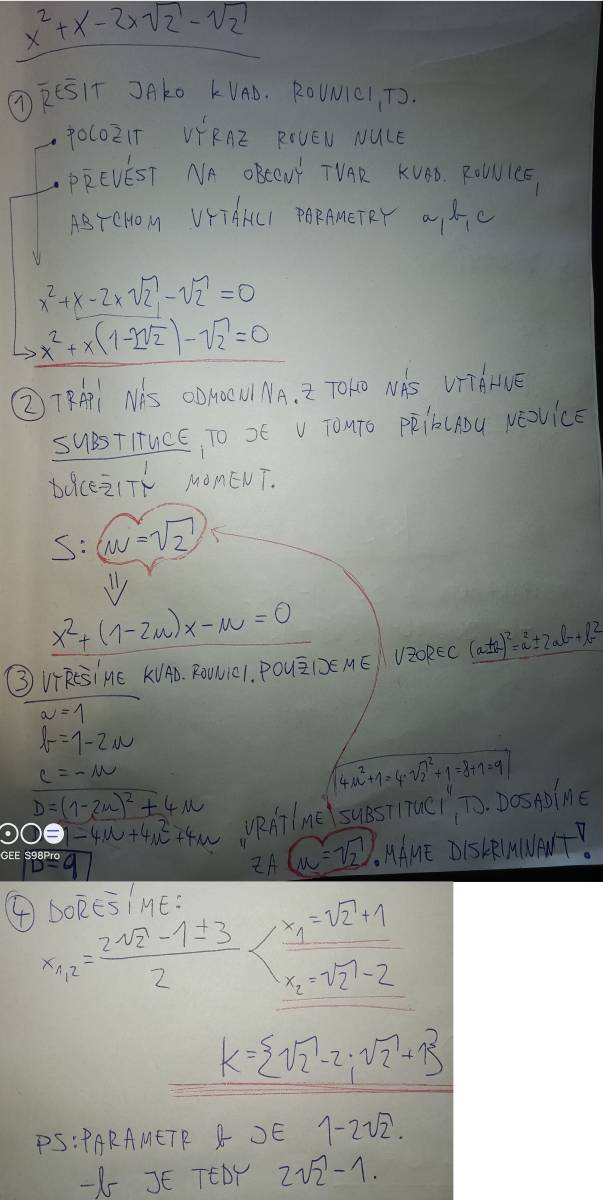 x² + x - 2x√2 - √2
① ŘEŠIT JAKO KVAD. ROVNICI, TJ.
• POLOŽIT VÝRAZ ROVEN NULE
• PŘEVÉST NA OBECNÝ TVAR KVAD. ROVNICE,
ABYCHOM VYTÁHLI PARAMETRY a, b, c
x² + x - 2x√2 - √2 = 0
x² + x(1-2√2) - √2 = 0
② TRÁPÍ NÁS ODMOCNINA. Z TOHO NÁS VYTÁHNE
SUBSTITUCE, TO JE V TOMTO PŘÍKLADU NEJVÍCE
DŮLEŽITÝ MOMENT.
S: u = √2
⇓
x² + (1-2u)x - u = 0
③ VYŘEŠÍME KVAD. ROVNICI. POUŽIJEME VZOREC (a±b)² = a² ± 2ab + b²
a = 1
b = 1-2u
c = -u
4u²+1 = 4·√2²+1 = 8+1 = 9
D = (1-2u)² + 4u
"VRÁTÍME SUBSTITUCI", TJ. DOSADÍME
1 - 4u + 4u² + 4u
ZA u = √2. MÁME DISKRIMINANT!
GEE S98Pro
D = 9
④ DOŘEŠÍME:
x₁,₂ = (2√2 - 1 ± 3)/2
x₁ = √2 + 1
x₂ = √2 - 2
K = {√2 - 2; √2 + 1}
PS: PARAMETR b JE 1-2√2.
-b JE TEDY 2√2-1.